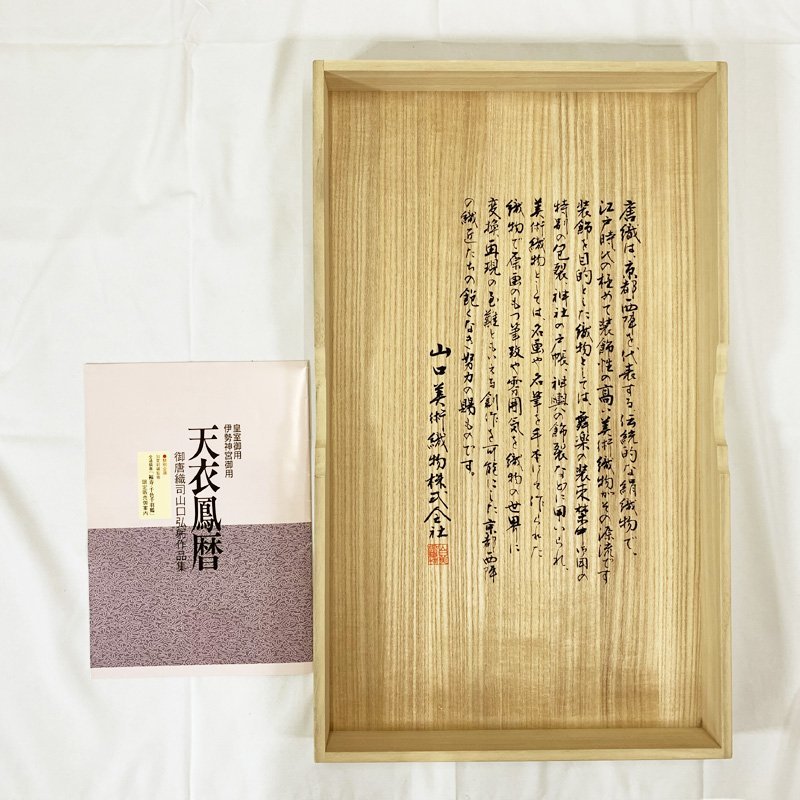 唐織は、京都西陣を代表する伝統的な絹織物で、
江戸時代の極めて装飾性の高い美術織物がその源流です
装飾を目的とした織物としては、舞楽の装束、禁中御用の
特別の包裂、神社の戸帳、神輿の飾裂などに用いられ、
美術織物としては、名画や名筆を手本にして作られた
織物で原画のもつ筆致や雰囲気を織物の世界に
変換、再現の至難ともいえる創作を可能にした京都西陣
の織匠たちの飽くなき努力の賜ものです。
山口美術織物株式会社
皇室御用
伊勢神宮御用
天衣鳳暦
御唐織司山口弘
作品集